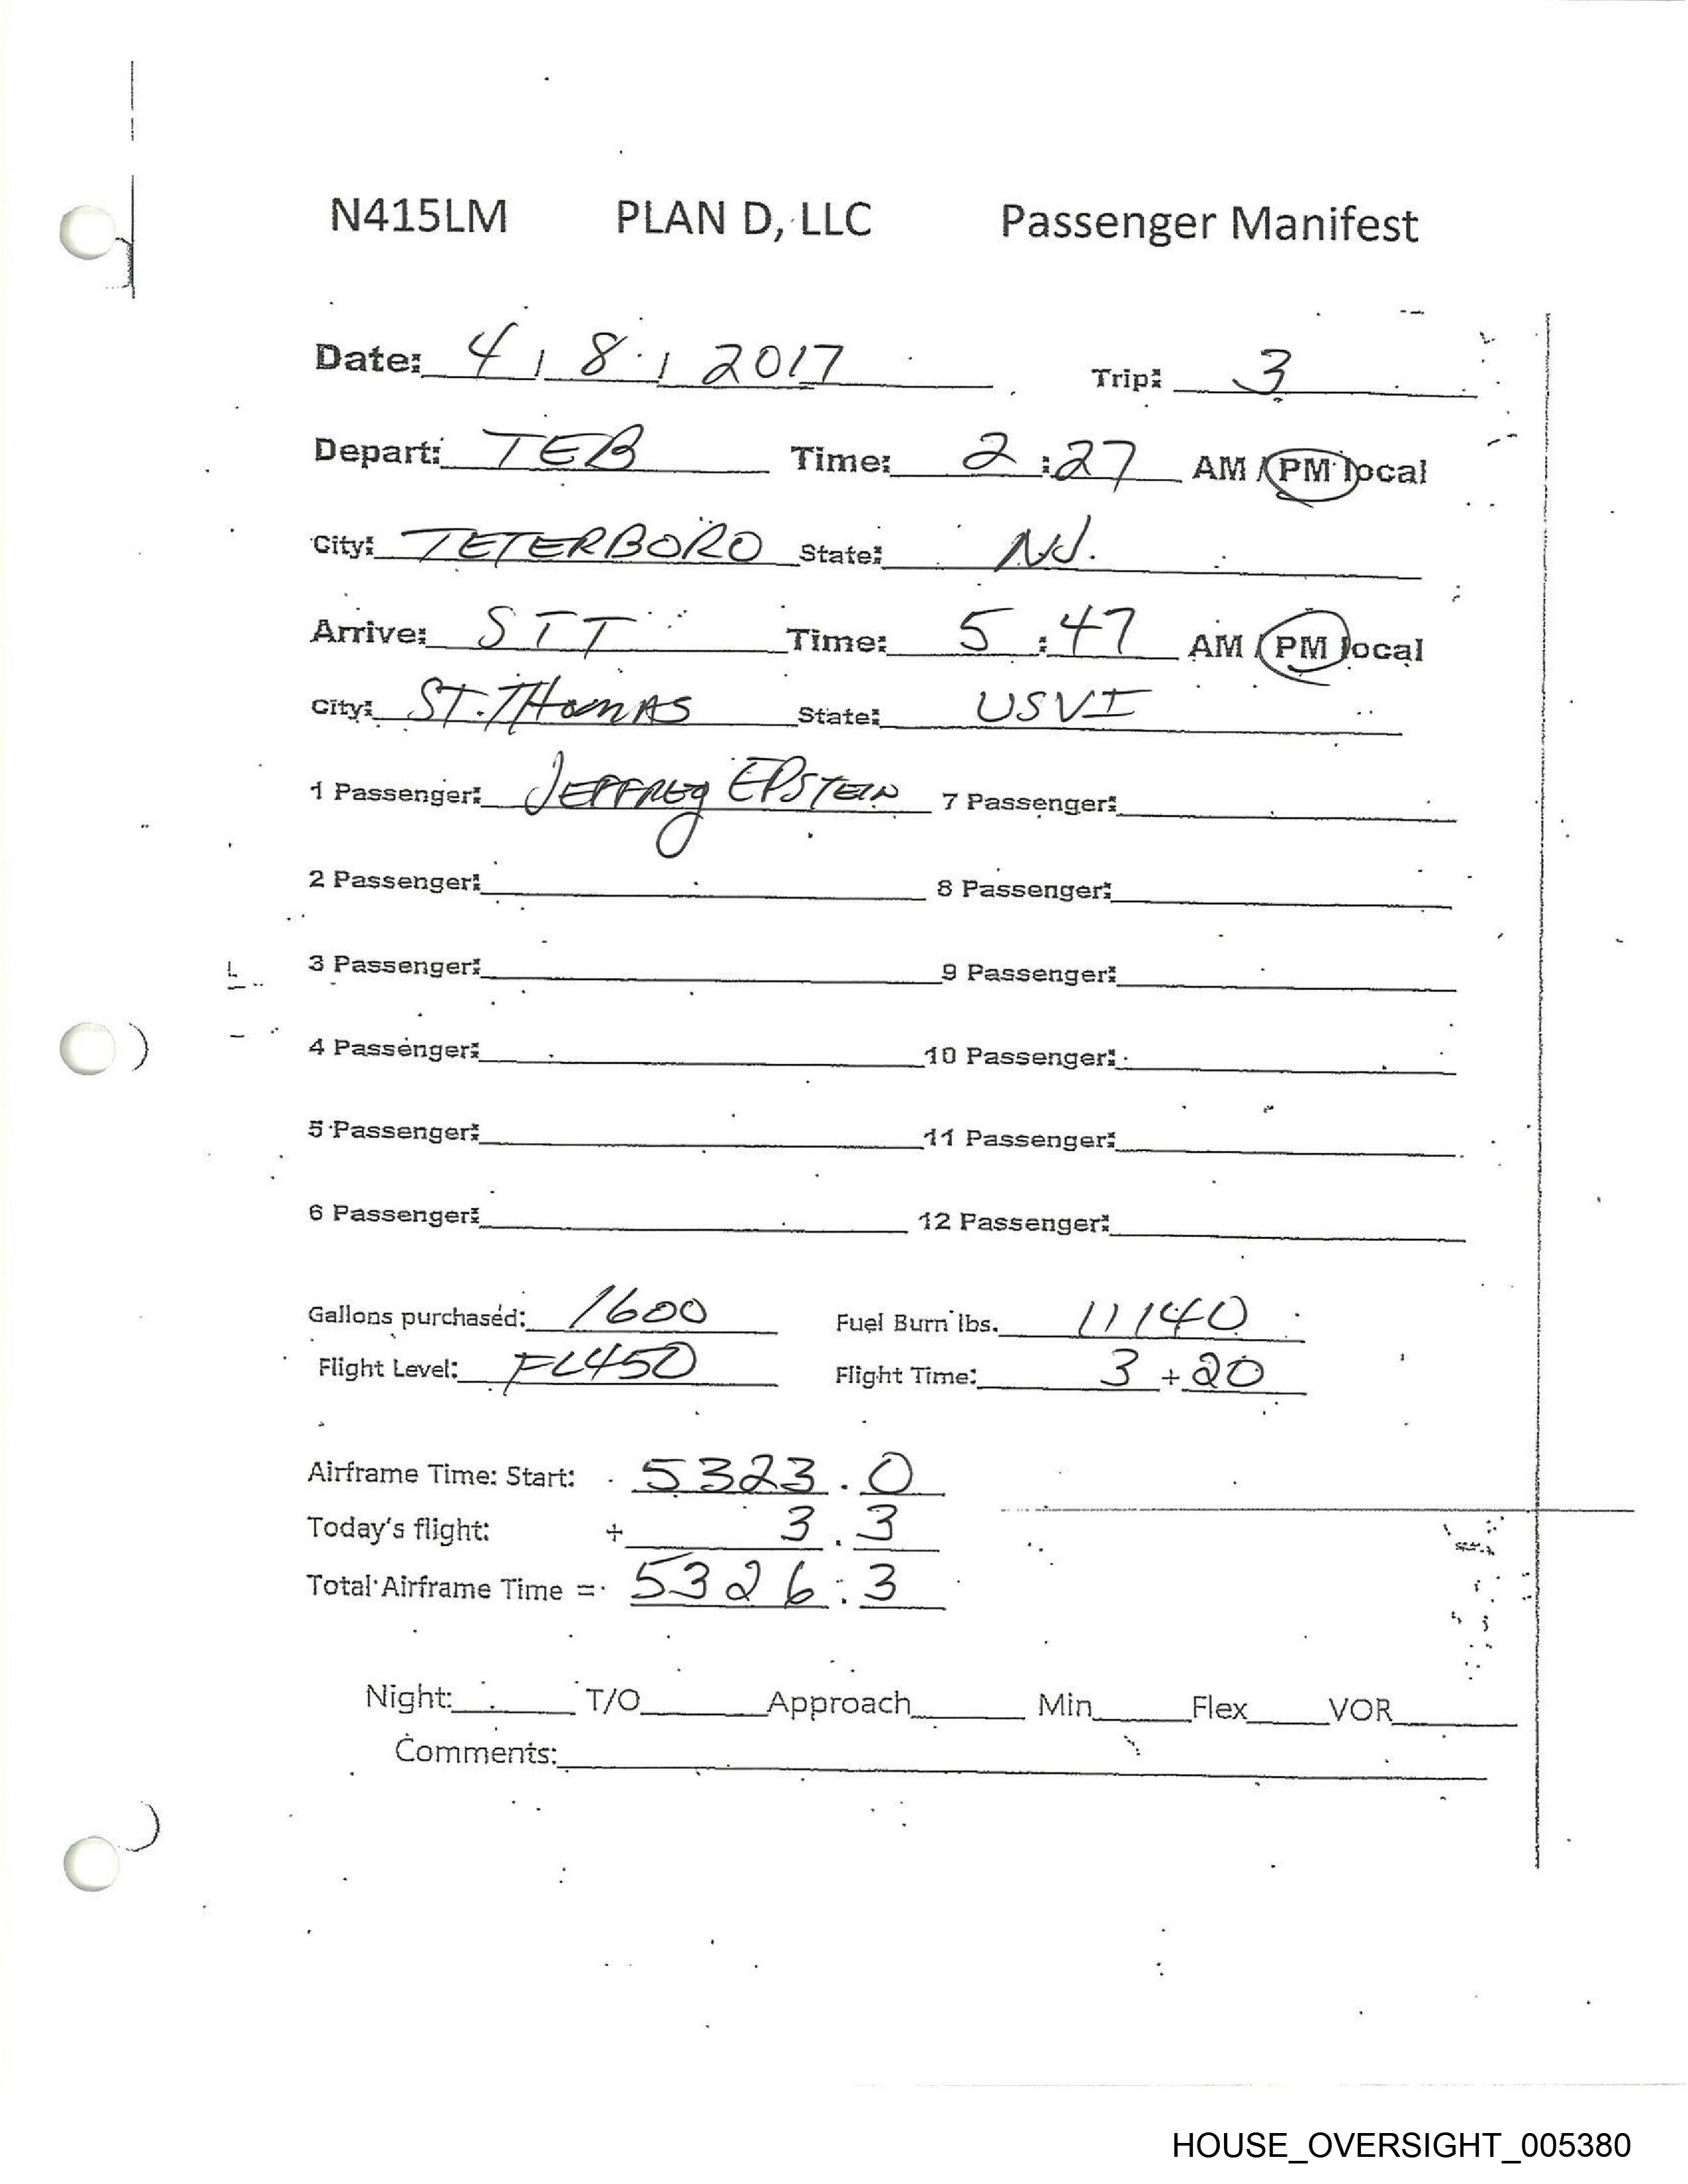 N415LM PLAN D, LLC Passenger Manifest
Date: 4 / 8 / 2017 Trip: 3
Depart: TEB Time: 2:27 AM / PM local
City: TETERBORO State: NJ.
Arrive: STT Time: 5:47 AM / PM local
City: ST. THOMAS State: USVI
1 Passenger: JEFFREY EPSTEIN 7 Passenger:
2 Passenger: 8 Passenger:
3 Passenger: 9 Passenger:
4 Passenger: 10 Passenger:
5 Passenger: 11 Passenger:
6 Passenger: 12 Passenger:
Gallons purchased: 1600 Fuel Burn lbs. 11140
Flight Level: FL450 Flight Time: 3 + 20
Airframe Time: Start: 5323.0
Today's flight: + 3.3
Total Airframe Time = 5326.3
Night: T/O Approach Min Flex VOR
Comments:
HOUSE_OVERSIGHT_005380